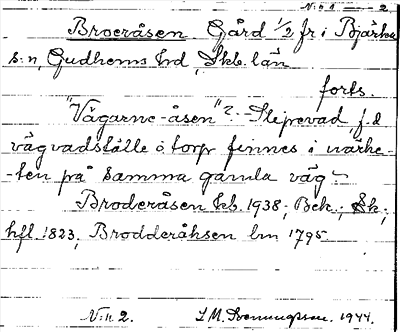 N:o 1 — 2
Broeråsen Gård 1/2 fr i Bjärka
s:n, Gudhems hd, Skb. län
forts.
"Vägarne-åsen"? - Slipevad, f.d
vägvadställe o torp finnes i närhe-
-ten på samma gamla väg -
Broderåsen kb. 1938; Bek.; Sk;
hfl. 1823; Brodderåhsen lm 1795
N:o 2. S.M. Svenungsson. 1944.